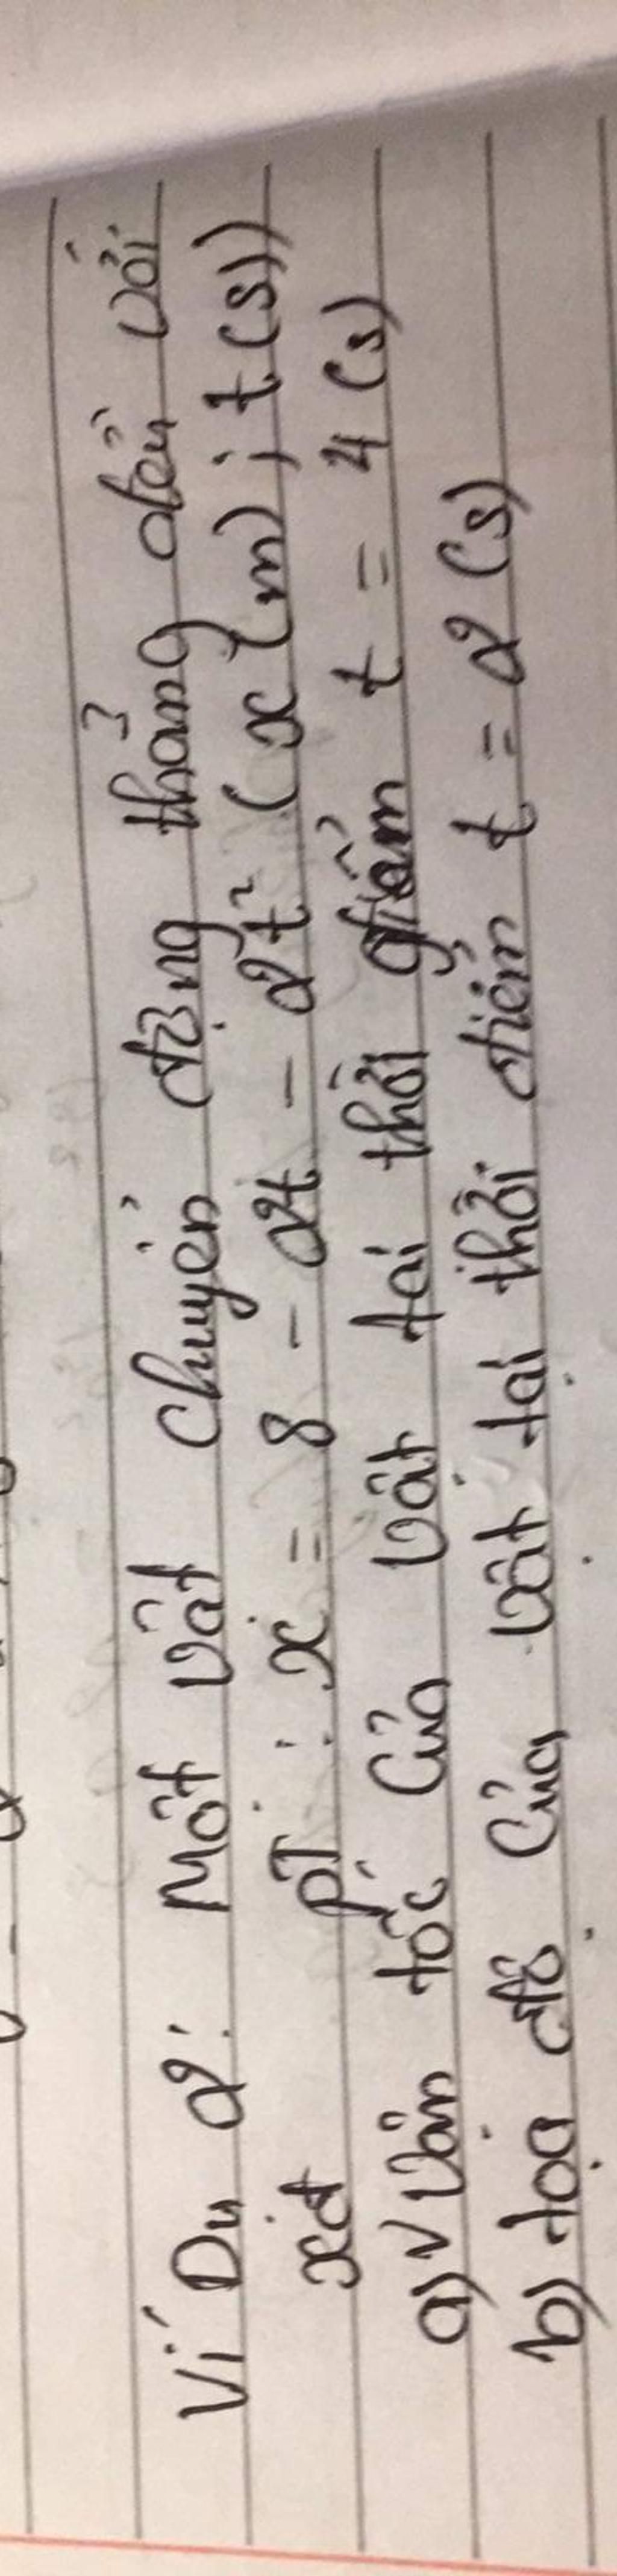 Ví Dụ 2: Một vật chuyển động thẳng đều với
xđ pT : x = 8 - 2t - 2t² (x (m) ; t (s))
a) v vận tốc của vật tại thời điểm t = 4 (s)
b) tọa độ của vật tại thời điểm t = 2 (s)